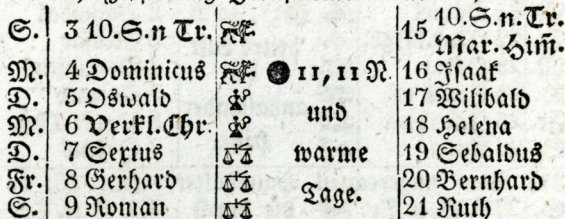 S. 3 10.S.n Tr. 15 10.S.n.Tr.
Mar. Him̃.
M. 4 Dominicus ● 11, 11 N. 16 Isaak
D. 5 Oswald 17 Wilibald
und
M. 6 Verkl.Chr. 18 Helena
D. 7 Sextus warme 19 Sebaldus
Fr. 8 Gerhard 20 Bernhard
Tage.
S. 9 Roman 21 Ruth